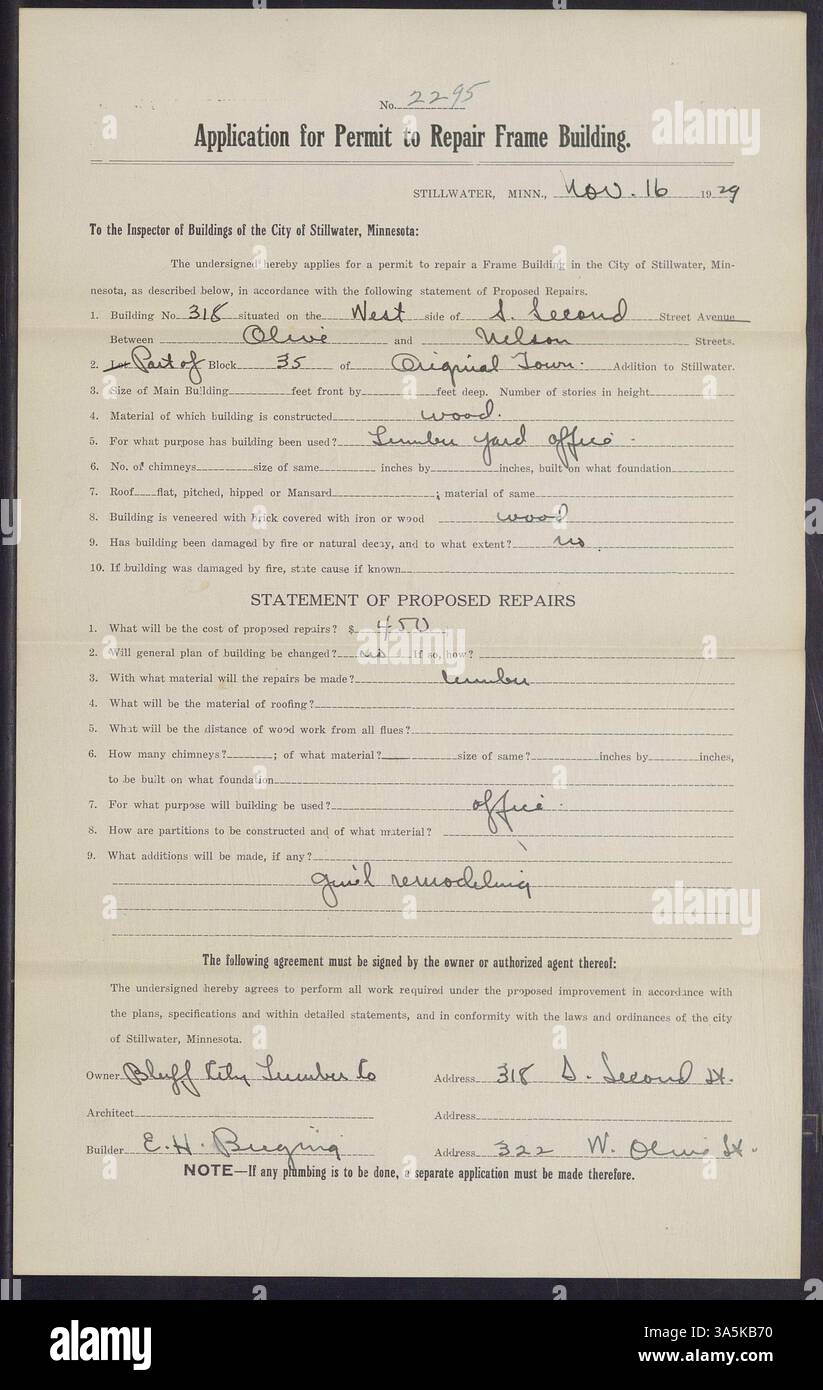 No. 2295
Application for Permit to Repair Frame Building.
STILLWATER, MINN., Nov. 16 1929
To the Inspector of Buildings of the City of Stillwater, Minnesota:
The undersigned hereby applies for a permit to repair a Frame Building in the City of Stillwater, Min-
nesota, as described below, in accordance with the following statement of Proposed Repairs.
1. Building No. 318 situated on the West side of S. Second Street Avenue
Between Olive and Nelson Streets.
2. Lot Part of Block 35 of Original Town. Addition to Stillwater.
3. Size of Main Building feet front by feet deep. Number of stories in height
4. Material of which building is constructed wood.
5. For what purpose has building been used? Lumber yard office -
6. No. of chimneys size of same inches by inches, built on what foundation
7. Roof flat, pitched, hipped or Mansard ; material of same
8. Building is veneered with brick covered with iron or wood wood
9. Has building been damaged by fire or natural decay, and to what extent? no.
10. If building was damaged by fire, state cause if known
STATEMENT OF PROPOSED REPAIRS
1. What will be the cost of proposed repairs? $ 450
2. Will general plan of building be changed? no If so, how?
3. With what material will the repairs be made? lumber
4. What will be the material of roofing?
5. What will be the distance of wood work from all flues?
6. How many chimneys? ; of what material? size of same? inches by inches,
to be built on what foundation
7. For what purpose will building be used? office.
8. How are partitions to be constructed and of what material?
9. What additions will be made, if any?
remodeling
The following agreement must be signed by the owner or authorized agent thereof:
The undersigned hereby agrees to perform all work required under the proposed improvement in accordance with
the plans, specifications and within detailed statements, and in conformity with the laws and ordinances of the city
of Stillwater, Minnesota.
Owner Bluff City Lumber Co Address 318 S. Second St.
Architect Address
Builder E. H. Address 322 W. Olive St.
NOTE—If any plumbing is to be done, a separate application must be made therefore.
alamy
Image ID: 3A5KB70
www.alamy.com